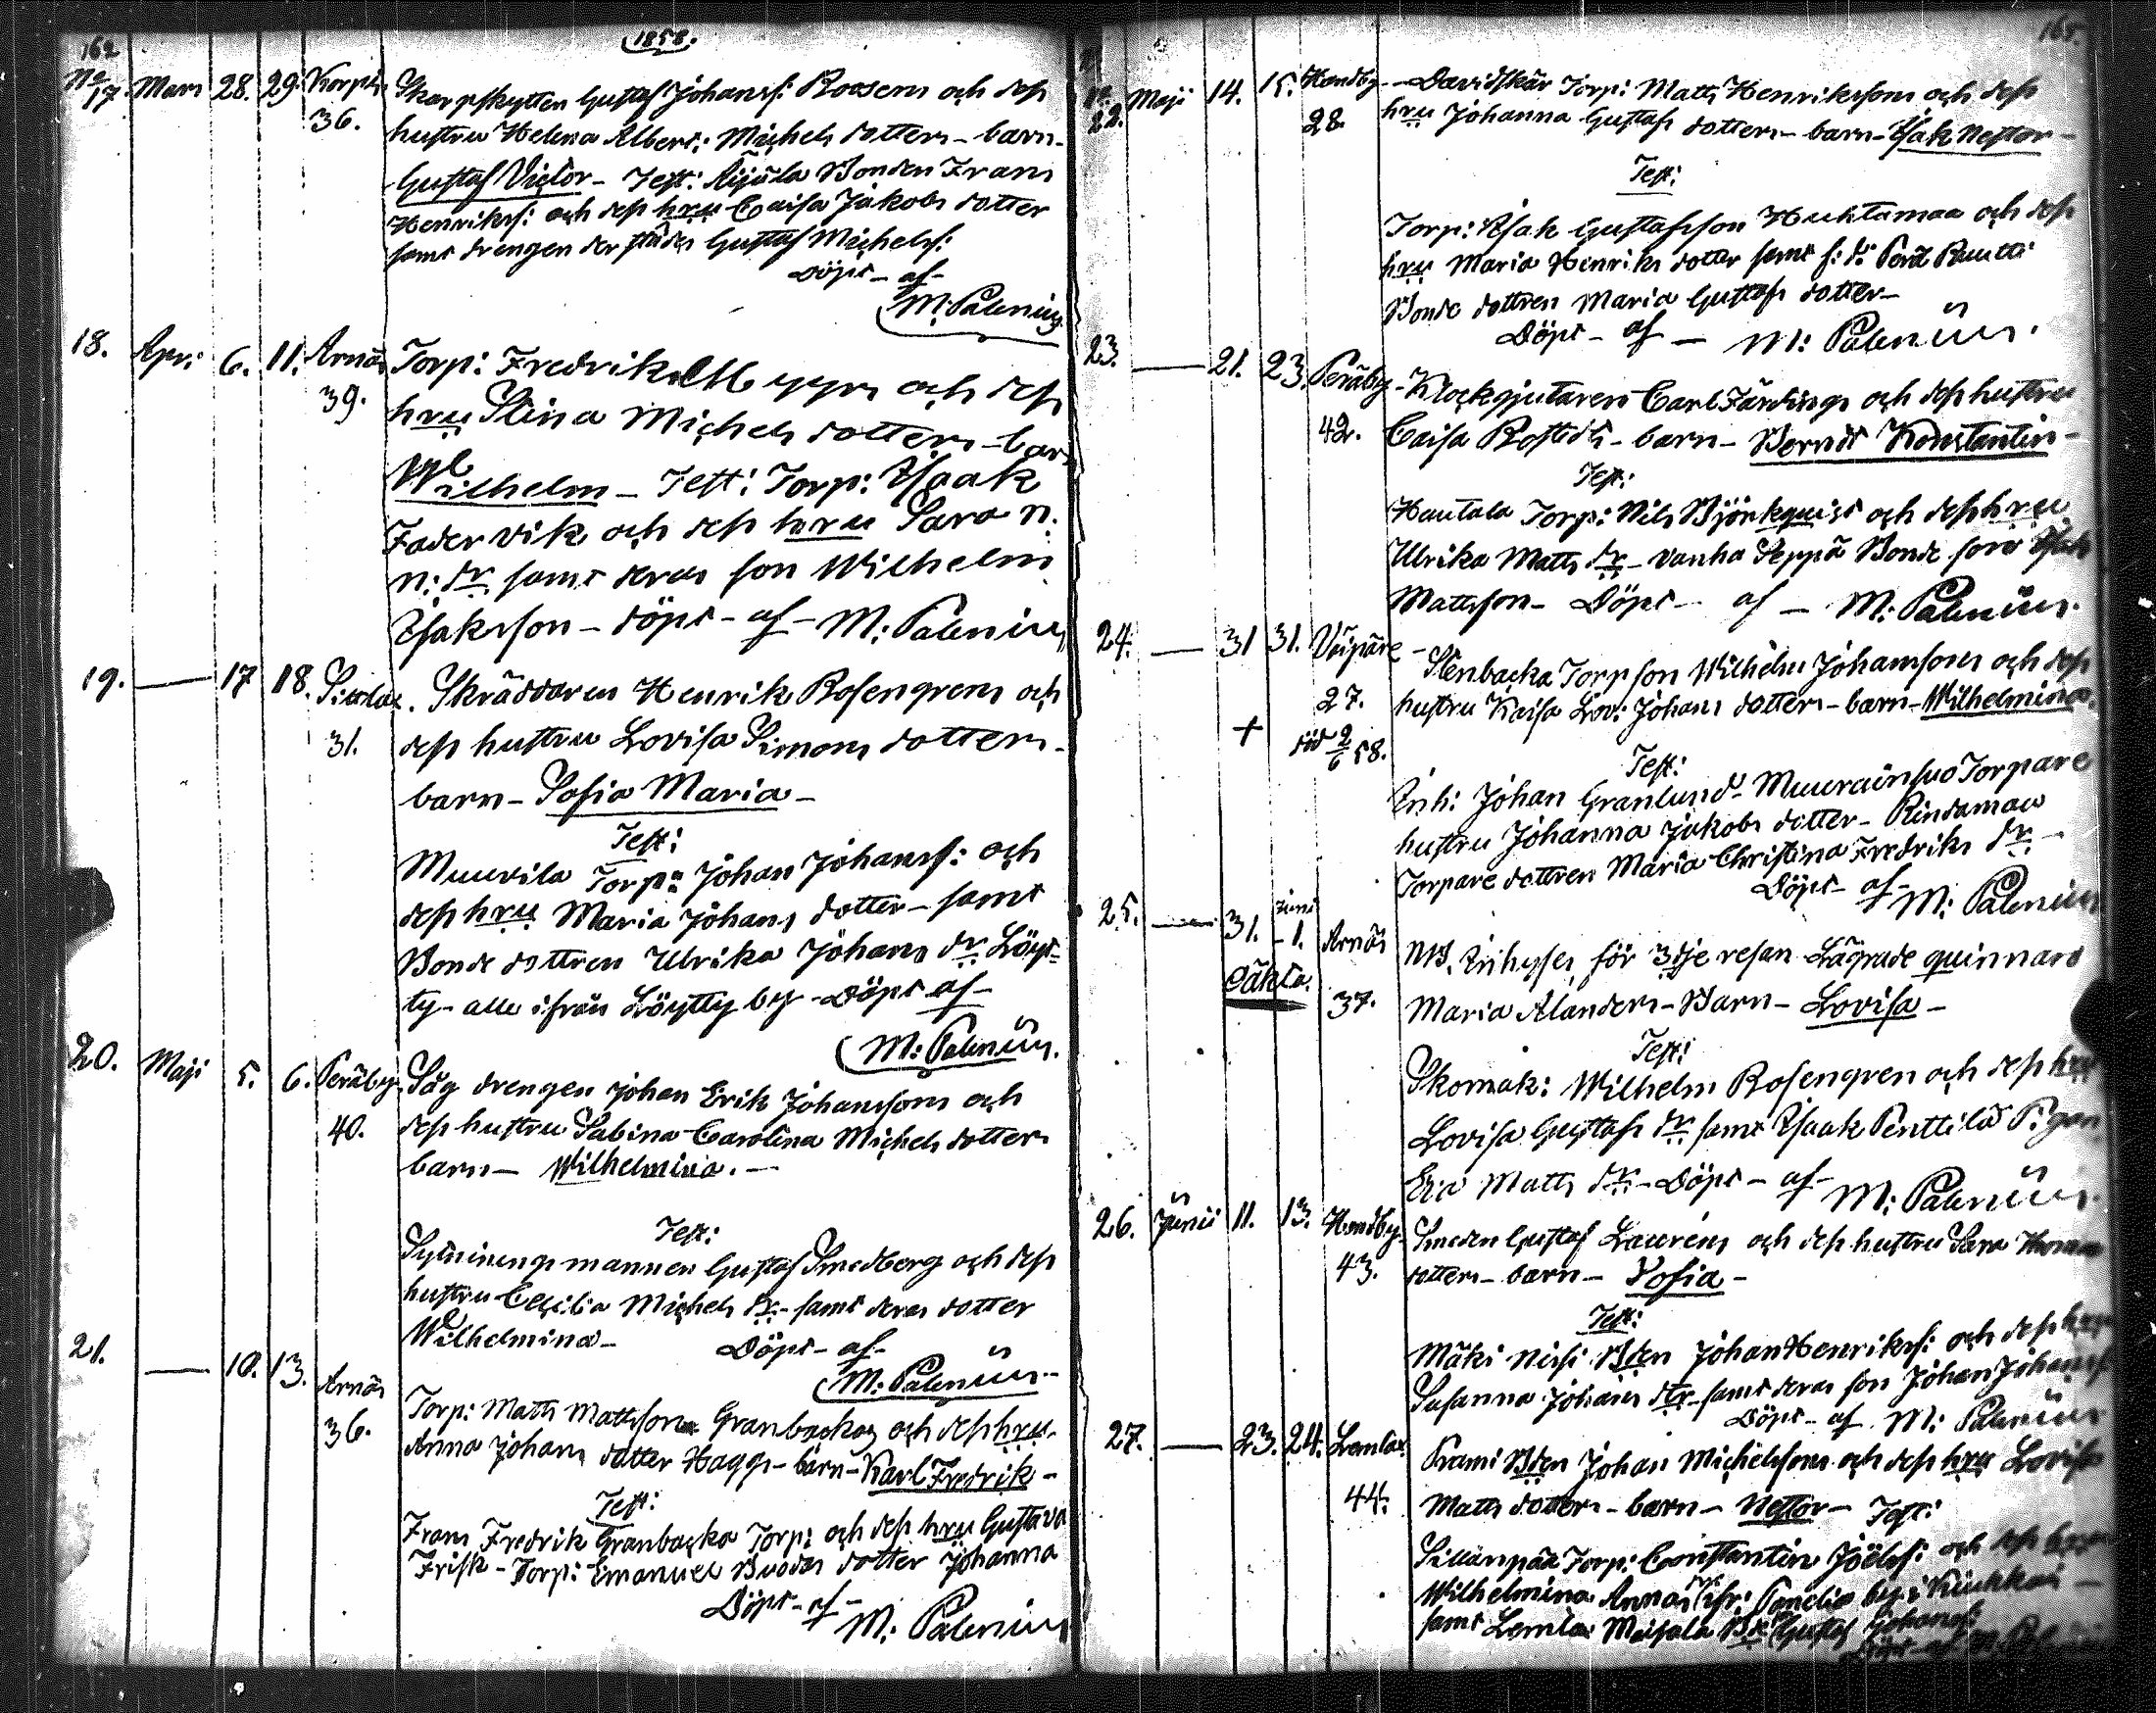 162
1858.
No 17. Mars 28. 29. Korpb. Skarpskytten Gustaf Johanss: Roosens och dess
36. hustru Helena Albert: Michels dotters - barn -
Gustaf Victor - Test: Äijälä Bonden Frans
Henrikss: och dess hru Caisa Jakobs dotter
samt drengen der städes Gustaf Michelss:
Döpt - af -
M: Palenius
18. Apr: 6. 11. Arnäs Torp: Fredrik Myyrs och dess
39. hru Stina Michels dotters - barn
Wilhelm - Test: Torp: Isaak
Fadervik och dess hru Sara n.
n: dr samt deras son Wilhelm
Isaksson - döpt - af - M: Palenius
19. — 17 18. Sierla. Skräddaren Henrik Rosengrens och
31. dess hustru Lovisa Simons dotters -
barn - Sofia Maria -
Test:
Muurila Torp: Johan Johanss: och
dess hru Maria Johans dotter - samt
Bonde dottren Ulrika Johans dr Löyt=
ty - alle ifrån Löytty by - Döpt af -
M: Palenius.
20. Maji 5. 6. Peräby. Såg drengen Johan Erik Johanssons och
40. dess hustru Sabina Carolina Michels dotters
barn - Wilhelmina. -
Test:
Sytningsmannen Gustaf Smedberg och dess
hustru Cecilia Michels dr - samt deras dotter
Wilhelmina -
Döpt - af -
M: Palenius -
21. — 10. 13. Arnäs Torp: Matts Mattsson Granbackas och dess hru
36. Anna Johans dotter Haggs - barn - Karl Fredrik -
Test:
Frans Fredrik Granbacka Torp: och dess hru Gustava
Frisk - Torp: Emanuel dotter Johanna
Döpt - af -
M: Palenius
165.
No 22. Maji 14. 15. Handby - Davidskär Torp: Matts Henrikssons och dess
28. hru Johanna Gustafs dotters - barn - Isak Nestor -
Test:
Torp: Isak Gustafsson Huhtamaa och dess
hru Maria Henriks dotter samt
Bonde dottren Maria Gustafs dotter -
Döpt - af - M: Palenius.
23. — 21. 23. Peräby - Klockgjutaren Carl Färdings och dess hustru
42. Caisa Rostedts - barn - Berndt Konstantin -
Test:
Hautala Torp: Nils Björkquist och dess hru
Ulrika Matts dr - Vanha Seppä Bonde son Isak
Mattsson - Döpt - af - M: Palenius.
24. — 31 31. Viipare - Stenbacka Torp son Wilhelm Johanssons och dess
27. hustru Kaisa Lov: Johans dotters - barn - Wilhelmina.
+ död 2/6 58.
Test:
Inh: Johan Granlund - Muurainsuo Torpare
hustru Johanna Jakobs dotter - Rindamaa
Torpare dottren Maria Christina Fredriks dr -
Döpt - af - M: Palenius
25. — 31. Juni 1. Arnäs NB. Inhyses för 3dje resan Lägrade quinnans
oäkta. 37. Maria Alanders - Barn - Lovisa -
Test:
Skomak: Wilhelm Rosengren och dess hru
Lovisa Gustafs dr samt Isaak Penttilä Pigan
Eva Matts dr - Döpt - af - M: Palenius.
26. Junii 11. 13. Handby. Smeden Gustaf Lauréns och dess hustru Sara Thomas
43. dotters - barn - Sofia -
Test:
Mäki Nissi Bden Johan Henrikss: och dess hru
Susanna Johans dtr - samt deras son Johan Johanss
Döpt - af M: Palenius
27. — 23. 24. Lemlax. Krami Bden Johan Michelssons och dess hru Lovisa
44. Matts dotters - barn - Nestor - Test:
Sillanpää Torp: Constantin Joëlss: och dess
Wilhelmina Annas ifr: by i Kiukkais -
samt Lemlax Maisala Gustaf Johanss:
Döpt - af M: Palenius